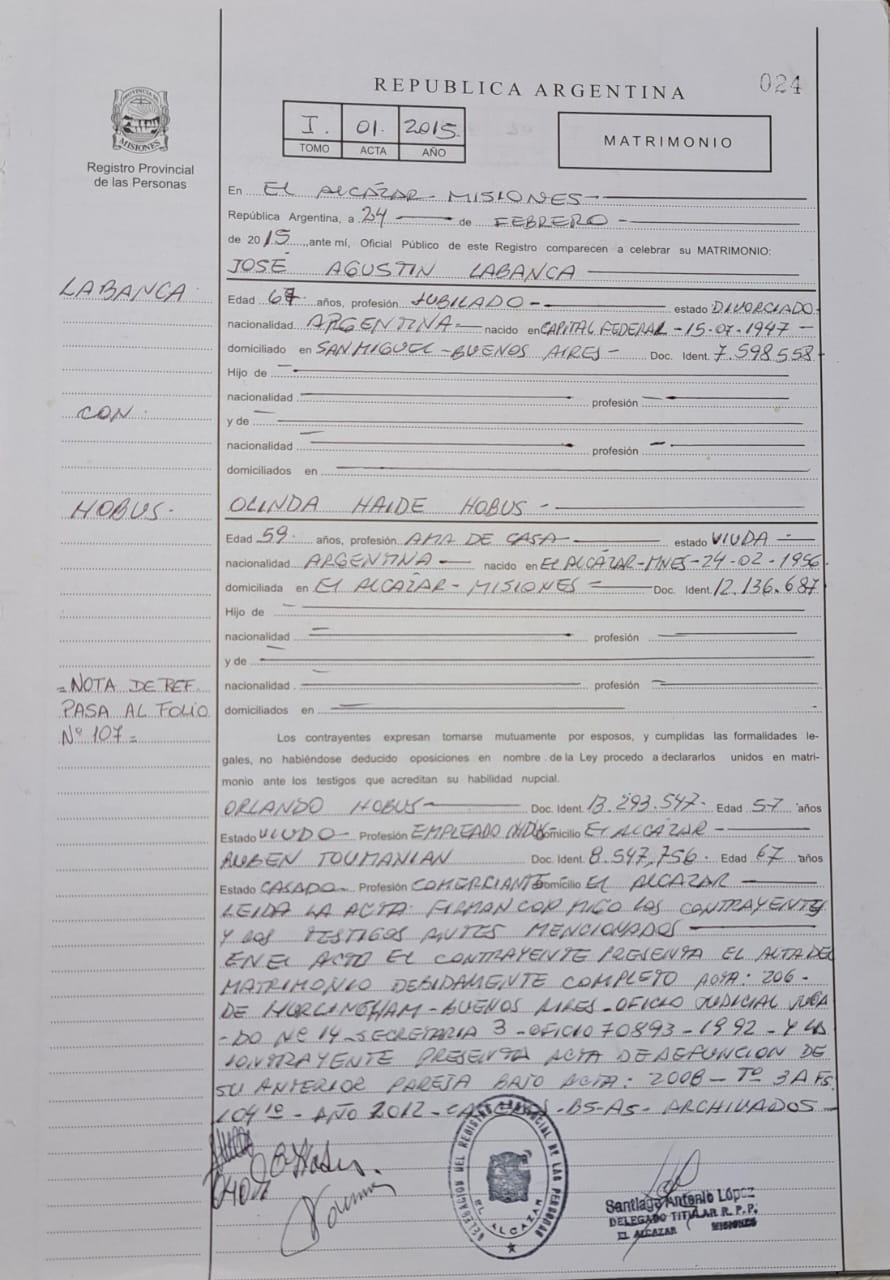 REPUBLICA ARGENTINA
024
PROVINCIA DE
MISIONES
Registro Provincial
de las Personas
I. 01. 2015.
TOMO ACTA AÑO
MATRIMONIO
En EL ALCÁZAR - MISIONES
República Argentina, a 24 de FEBRERO
de 2015, ante mí, Oficial Público de este Registro comparecen a celebrar su MATRIMONIO:
JOSÉ AGUSTIN LABANCA
LABANCA
Edad 67 años, profesión JUBILADO - estado DIVORCIADO
nacionalidad ARGENTINA nacido en CAPITAL FEDERAL - 15-07-1947 -
domiciliado en SAN MIGUEL - BUENOS AIRES - Doc. Ident. 7.598.558
Hijo de
nacionalidad profesión
CON.
y de
nacionalidad profesión
domiciliados en
HOBUS.
OLINDA HAIDE HOBUS -
Edad 59. años, profesión AMA DE CASA estado VIUDA
nacionalidad ARGENTINA nacido en EL ALCÁZAR - MNES - 24-02-1956
domiciliada en El ALCAZAR - MISIONES Doc. Ident. 12.136.687
Hijo de
nacionalidad profesión
y de
nacionalidad profesión
domiciliados en
= NOTA DE REF.
PASA AL FOLIO
Nº 107 =
Los contrayentes expresan tomarse mutuamente por esposos, y cumplidas las formalidades le-
gales, no habiéndose deducido oposiciones en nombre de la Ley procedo a declararlos unidos en matri-
monio ante los testigos que acreditan su habilidad nupcial.
ORLANDO HOBUS Doc. Ident. 13.293.547. Edad 57 años
Estado VIUDO Profesión EMPLEADO Domicilio El ALCAZAR -
RUBEN TOUMANIAN Doc. Ident. 8.547.756. Edad 67 años
Estado CASADO Profesión COMERCIANTE Domicilio EL ALCAZAR
LEIDA LA ACTA FIRMAN CON MIGO LOS CONTRAYENTES
Y LOS TESTIGOS ANTES MENCIONADOS
EN EL ACTO EL CONTRAYENTE PRESENTA EL ALTA DEL
MATRIMONIO DEBIDAMENTE COMPLETO ACTA: 206 -
DE HURLINGHAM - BUENOS AIRES - OFICIO JUDICIAL JUZGA
- DO Nº 14 - SECRETARIA 3 - OFICIO 70893 - 1992 - Y LA
CONTRAYENTE PRESENTA ACTA DE DEFUNCION DE
SU ANTERIOR PAREJA BAJO ACTA: 2008 - Tº 3 A Fs.
104 1º - AÑO 2012 - BS - AS - ARCHIVADOS -
DELEGACION DEL REGISTRO PROVINCIAL DE LAS PERSONAS
EL ALCAZAR
Santiago Antonio López
DELEGADO TITULAR R. P. P.
EL ALCAZAR MISIONES